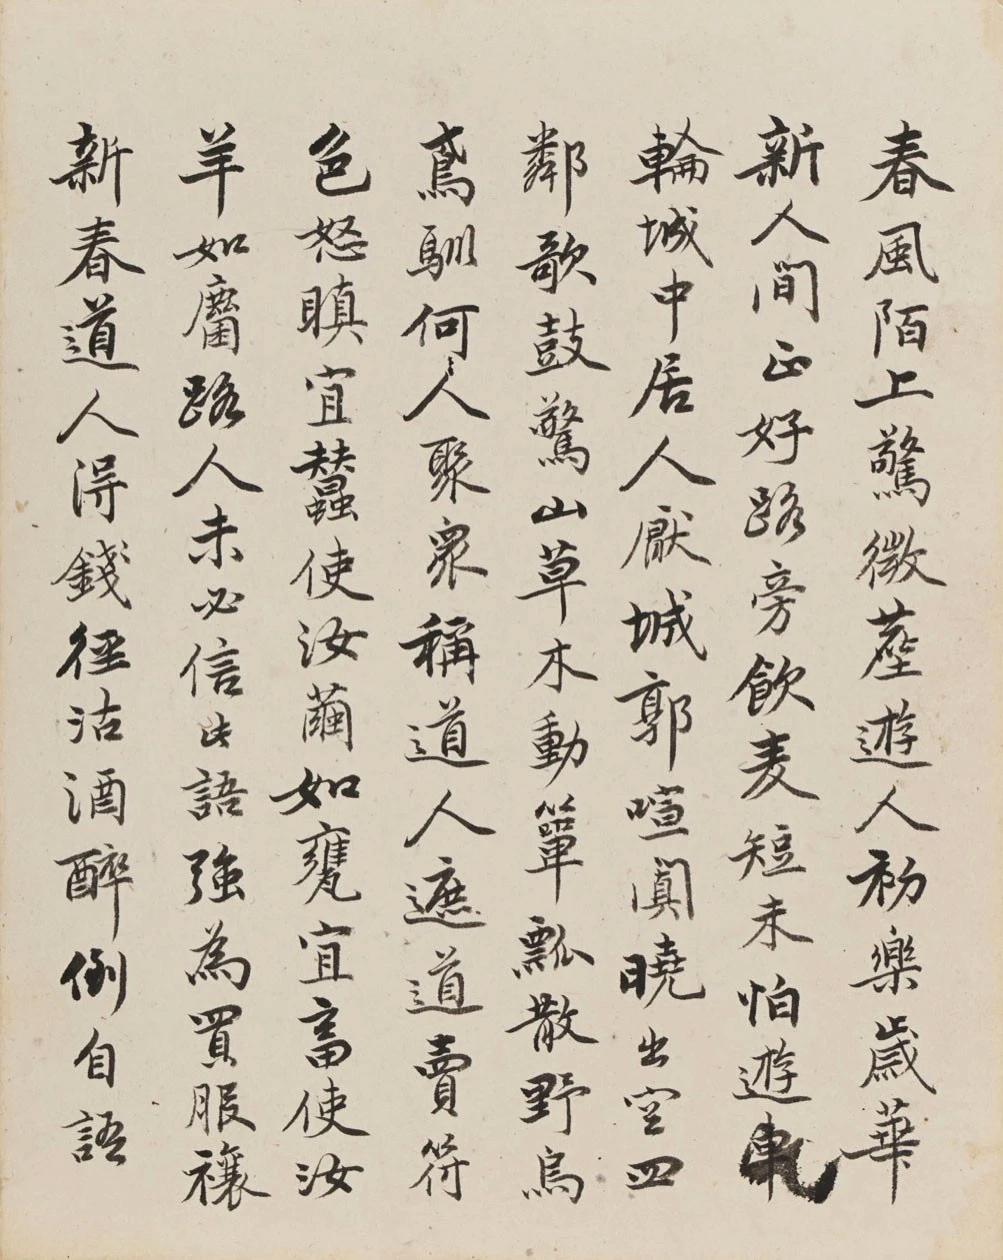 春風陌上驚微塵遊人初樂歲華
新人間正好路旁飲麥短未怕遊車
輪城中居人厭城郭喧闐曉出空四
鄰歌鼓驚山草木動簞瓢散野烏
鳶馴何人聚眾稱道人遮道賣符
色怒瞋宜蠶使汝繭如甕宜畜使汝
羊如麕路人未必信此語強為買服禳
新春道人得錢徑沽酒醉倒自語